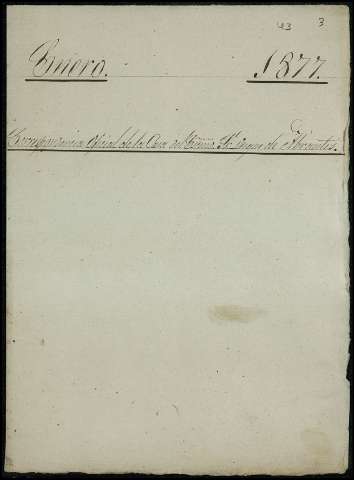 43 3
Enero. 1877.
Correspondencia oficial de la Casa del Excmo. Sr. Duque de Abrantes.